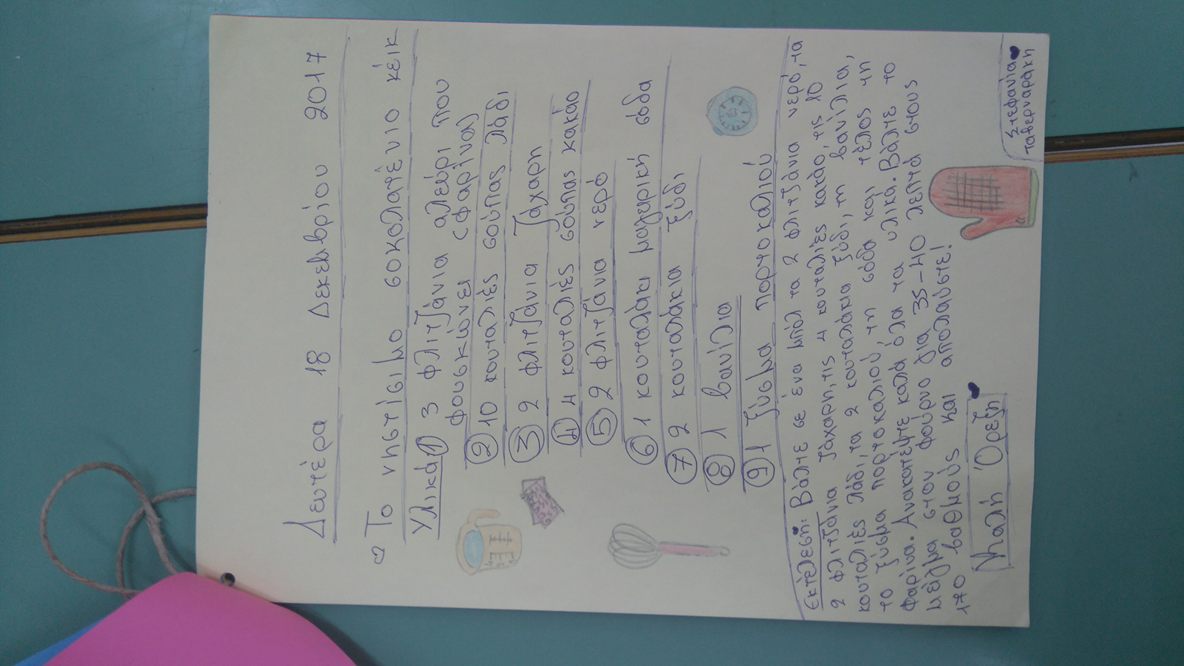 Δευτέρα 18 Δεκεμβρίου 2017
Το νηστίσιμο σοκολατένιο κέικ
Υλικά ① 3 φλιτζάνια αλεύρι που
φουσκώνει (φαρίνα)
② 10 κουταλιές σούπας λάδι
③ 2 φλιτζάνια ζάχαρη
④ 4 κουταλιές σούπας κακάο
⑤ 2 φλιτζάνια νερό
⑥ 1 κουταλάκι μαγειρική σόδα
⑦ 2 κουταλάκια ξύδι
⑧ 1 βανίλια
⑨ 1 ξύσμα πορτοκαλιού
Εκτέλεση: Βάλτε σε ένα μπολ τα 2 φλιτζάνια νερό, τα
2 φλιτζάνια ζάχαρη, τις 4 κουταλιές κακάο, τις 10
κουταλιές λάδι, τα 2 κουταλάκια ξύδι, τη βανίλια,
το ξύσμα πορτοκαλιού, τη σόδα και τέλος τη
φαρίνα. Ανακατέψτε καλά όλα τα υλικά. Βάλτε το
μείγμα στον φούρνο για 35-40 λεπτά στους
170 βαθμούς και απολαύστε!
Καλή Όρεξη
Στεφανία
Ταβερναράκη